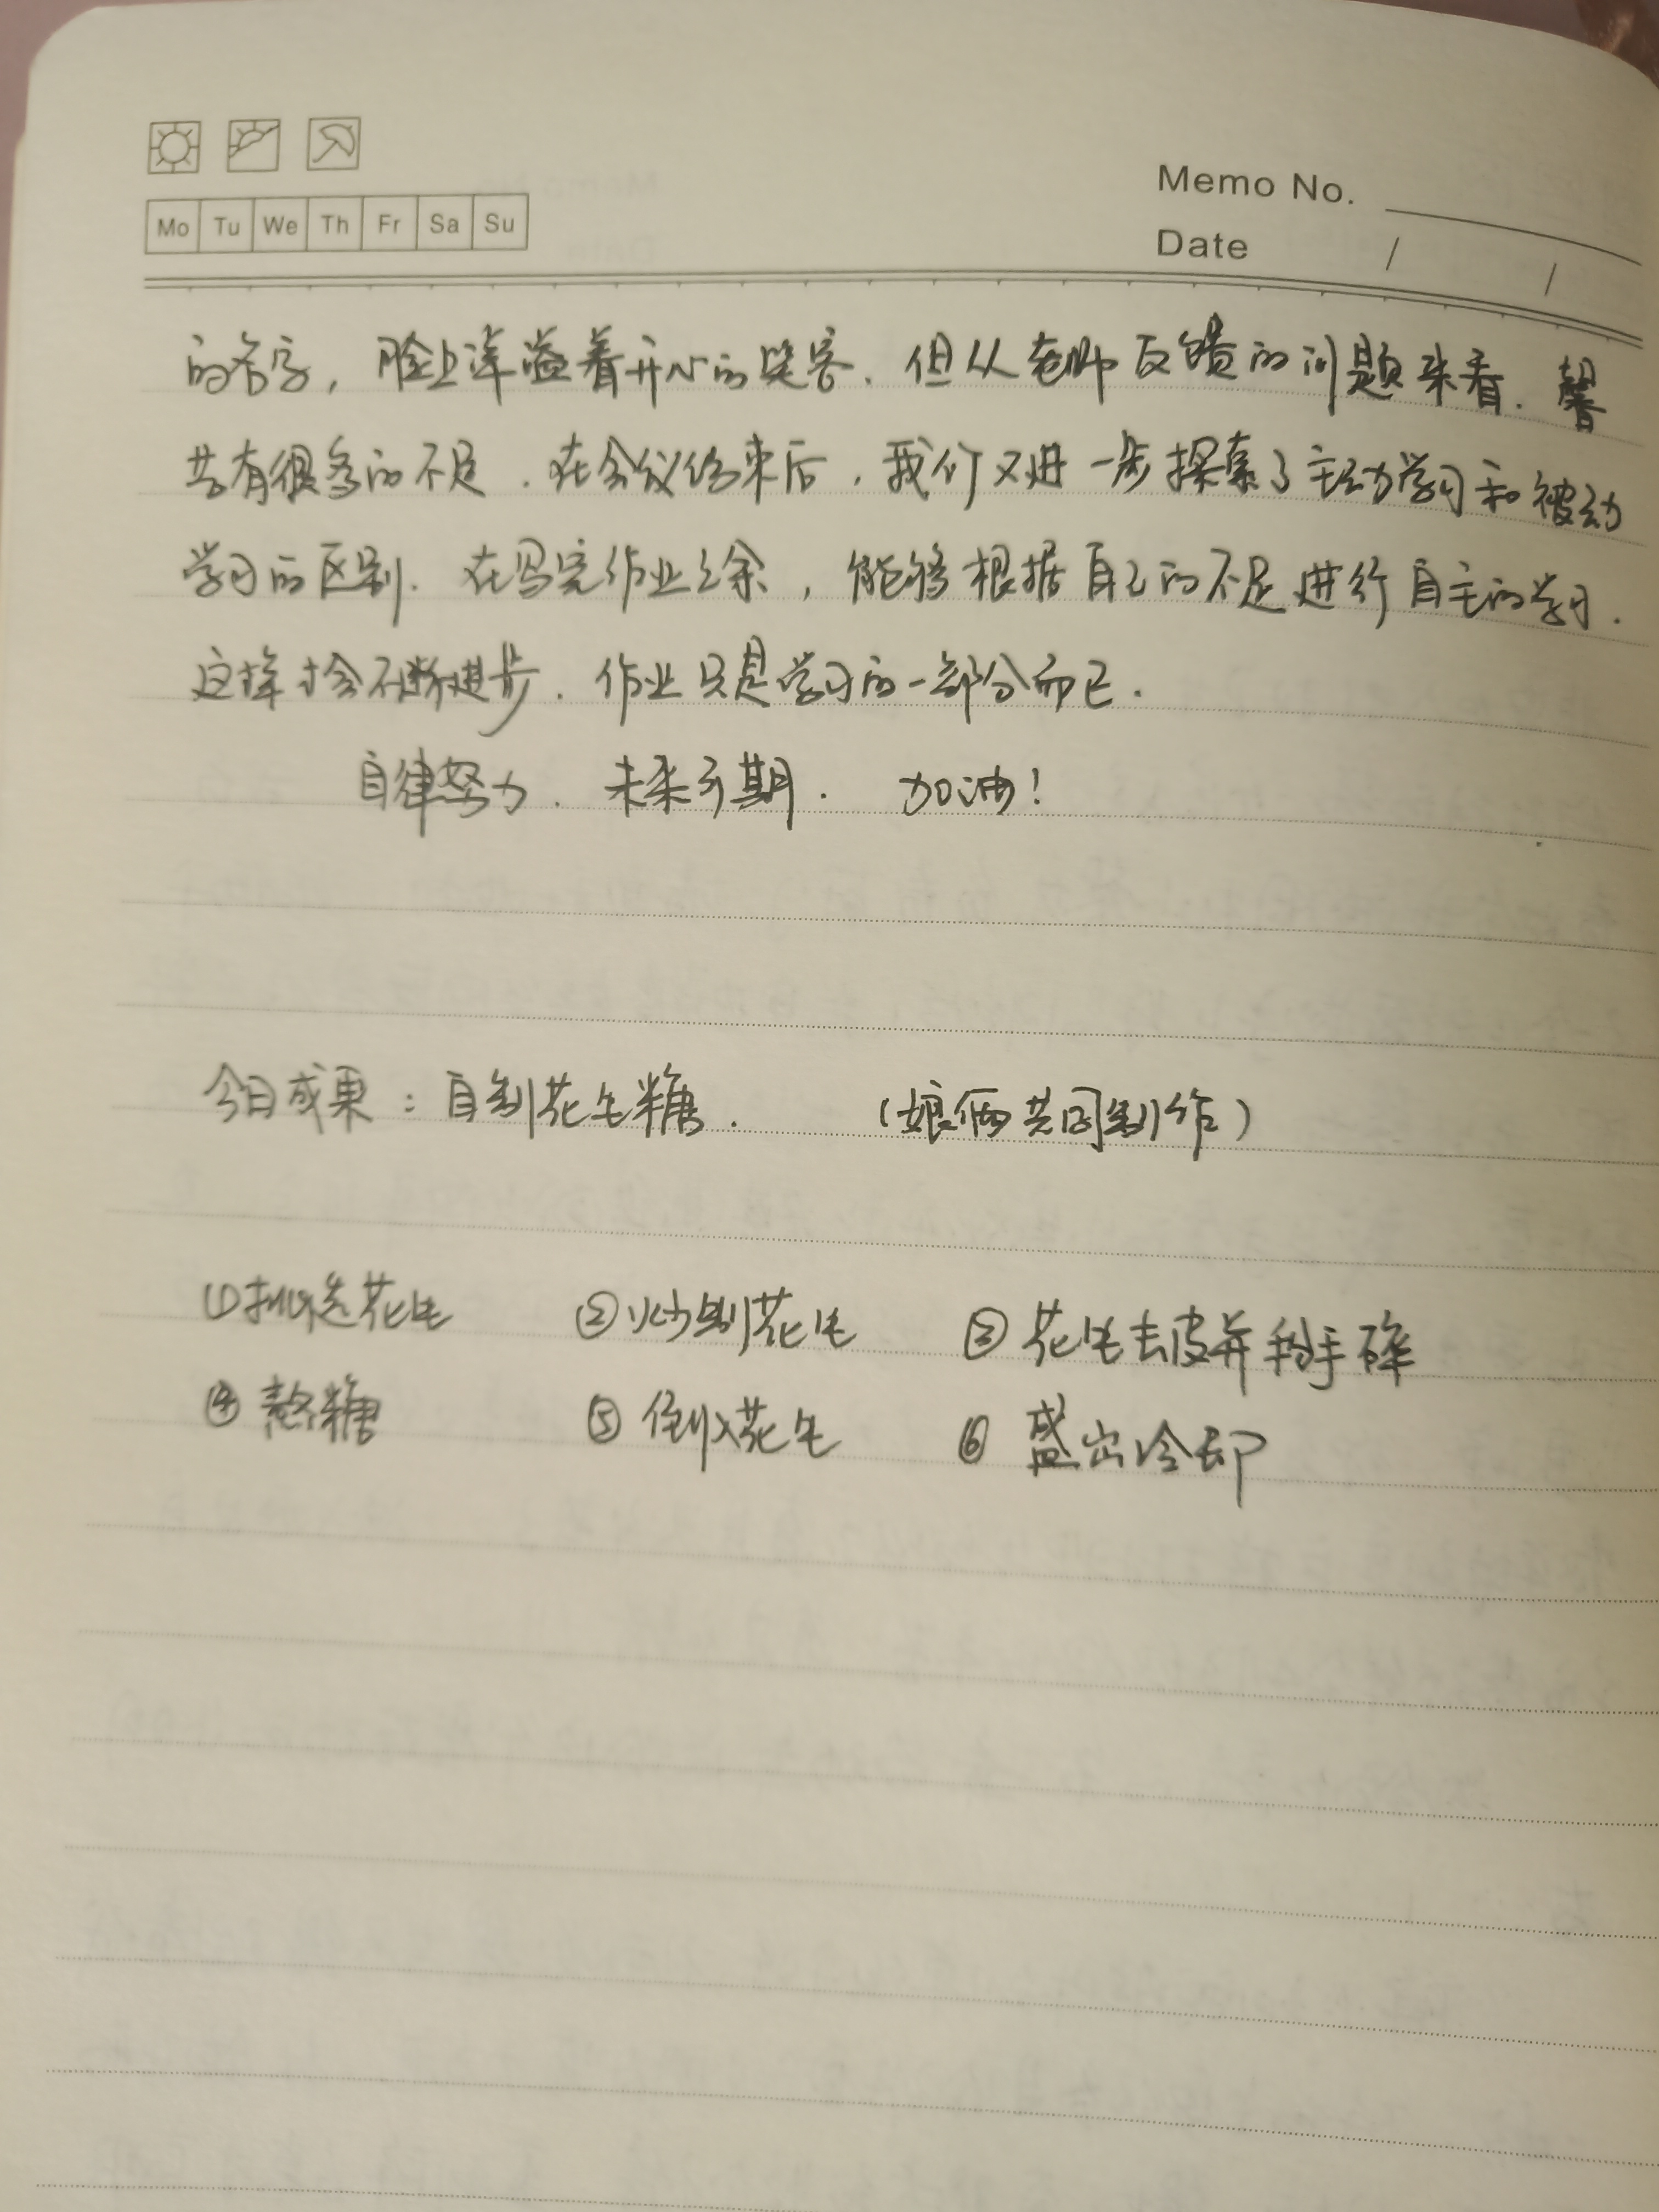 Memo No.
Mo Tu We Th Fr Sa Su
Date / /
的名字，脸上洋溢着开心的笑容．但从老师反馈的问题来看．馨
共有很多的不足．在会议结束后，我们又进一步探索了主动学习和被动
学习的区别．在写完作业之余，能够根据自己的不足进行自主的学习．
这样才会不断进步．作业只是学习的一部分而已．
自律努力．未来可期．加油！
今日成果：自制花生糖．（娘俩共同制作）
①挑选花生 ②炒制花生 ③花生去皮并 碎
④熬糖 ⑤倒入花生 ⑥盛出冷却